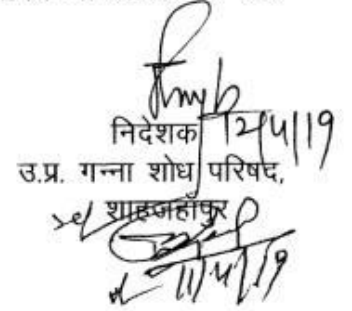 निदेशक 12/4/19
उ.प्र. गन्ना शोध परिषद,
शाहजहाँपुर
11/4/19